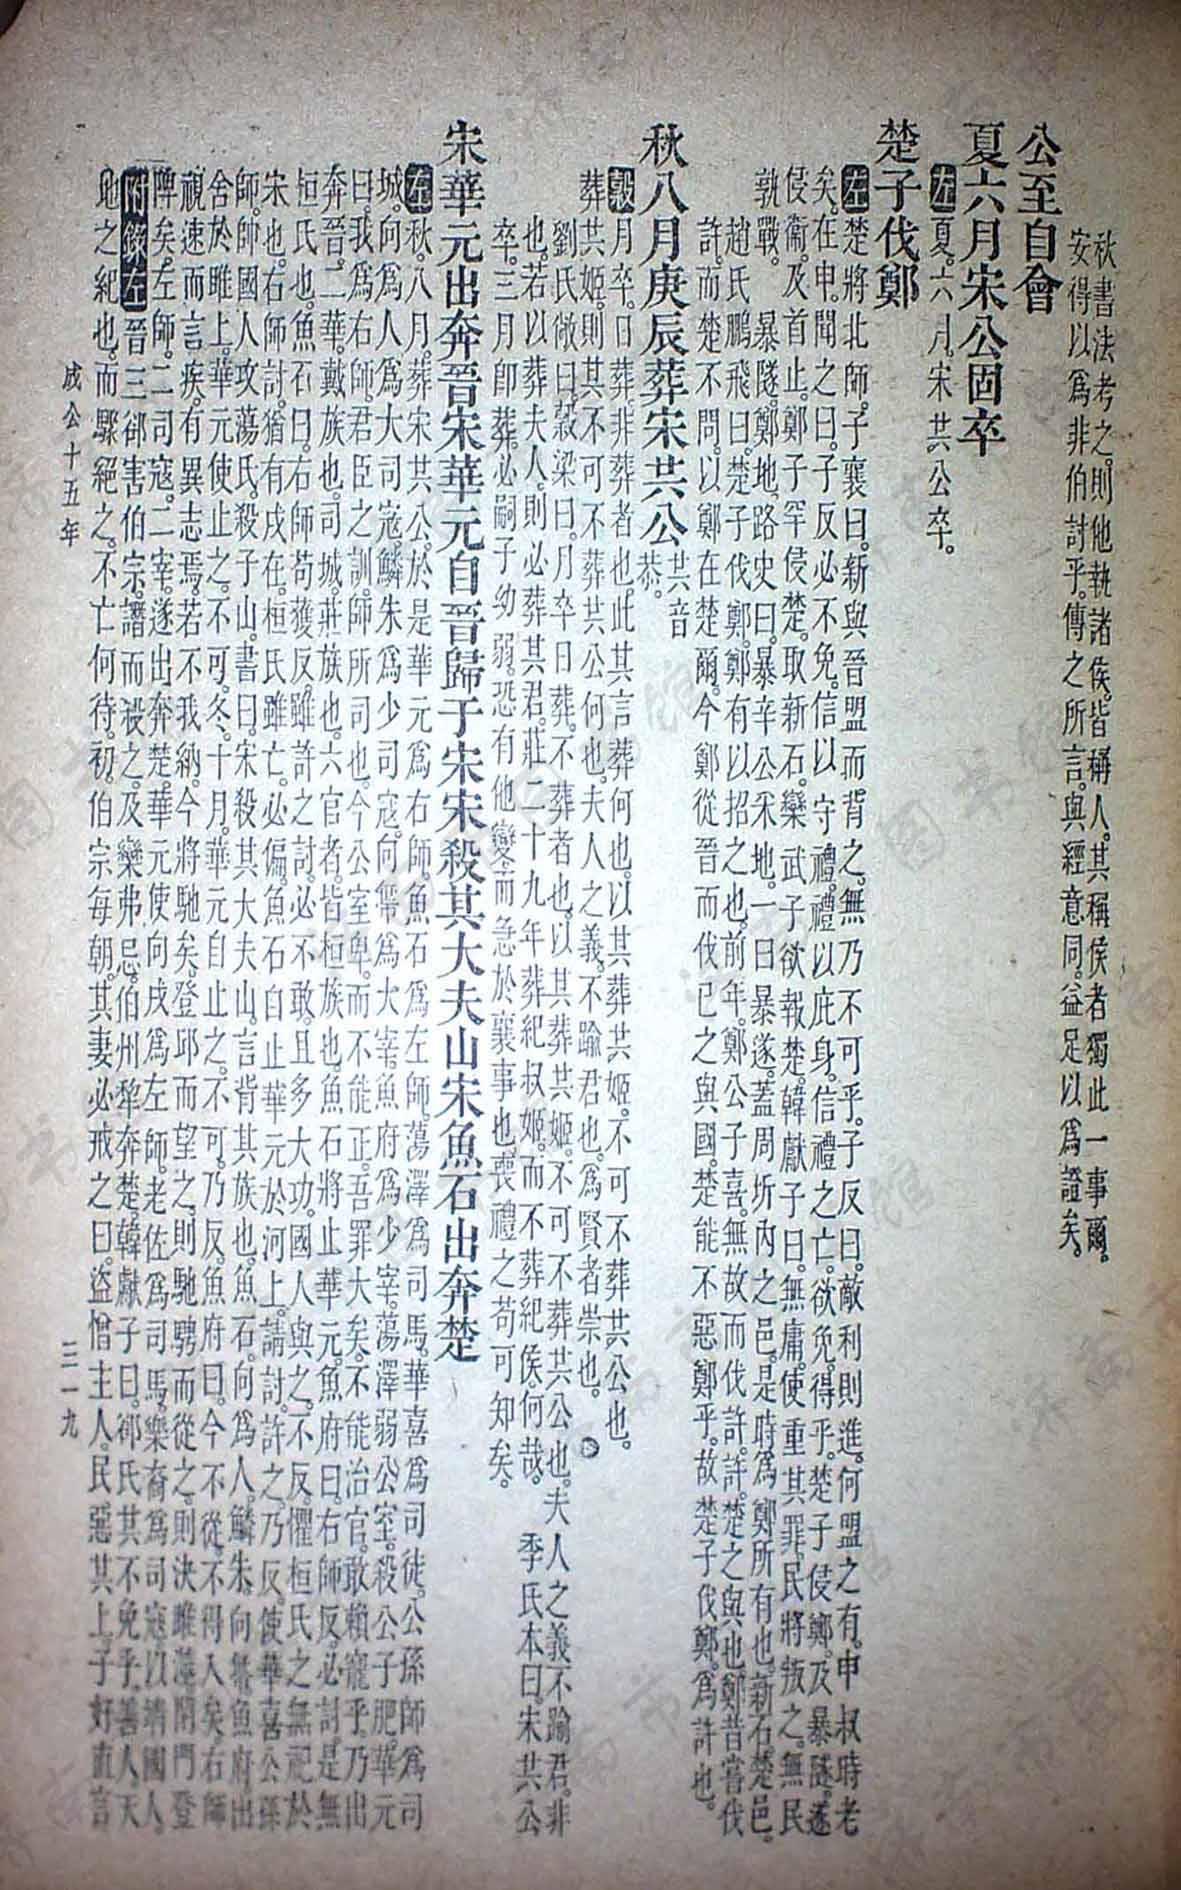 秋書法考之。則他執諸侯。皆稱人。其稱侯者。獨此一事爾。
安得以爲非伯討乎。傳之所言。與經意同。益足以爲證矣。
公至自會
夏六月宋公固卒
左夏。六月。宋共公卒。
楚子伐鄭
左楚將北師。子襄曰。新與晉盟而背之。無乃不可乎。子反曰。敵利則進。何盟之有。申叔時老
矣。在申。聞之曰。子反必不免。信以守禮。禮以庇身。信禮之亡。欲免得乎。楚子侵鄭。及暴隧。遂
侵衞。及首止。鄭子罕侵楚。取新石。欒武子欲報楚。韓獻子曰。無庸。使重其罪。民將叛之。無民
孰戰。　暴隧。鄭地。路史曰。暴辛公采地。一曰暴遂。蓋周圻內之邑。是時爲鄭所有也。新石。楚邑。
趙氏鵬飛曰。楚子伐鄭。鄭有以招之也。前年。鄭公子喜。無故而伐許。許。楚之與也。鄭昔嘗伐
許。而楚不問。以鄭在楚爾。今鄭從晉而伐已之與國。楚能不惡鄭乎。故楚子伐鄭。爲許也。
秋八月庚辰葬宋共公共音恭。
穀月卒。日葬。非葬者也。此其言葬何也。以其葬共姬。不可不葬共公也。
葬共姬。則其不可不葬共公何也。夫人之義。不踰君也。爲賢者崇也。
劉氏敞曰。穀梁曰。月卒日葬。不葬者也。以其葬共姬。不可不葬共公也。夫人之義不踰君。非
也。若以葬夫人。則必葬其君。莊二十九年葬紀叔姬。而不葬紀侯。何哉。　季氏本曰。宋共公
卒。三月卽葬。必嗣子幼弱。恐有他變。而急於襄事也。喪禮之苟可知矣。
宋華元出奔晉宋華元自晉歸于宋宋殺其大夫山宋魚石出奔楚
左秋。八月。葬宋共公。於是華元爲右師。魚石爲左師。蕩澤爲司馬。華喜爲司徒。公孫師爲司
城。向爲人爲大司寇。鱗朱爲少司寇。向帶爲大宰。魚府爲少宰。蕩澤弱公室。殺公子肥。華元
曰。我爲右師。君臣之訓。師所司也。今公室卑。而不能正。吾罪大矣。不能治官。敢賴寵乎。乃出
奔晉。二華。戴族也。司城。莊族也。六官者。皆桓族也。魚石將止華元。魚府曰。右師反。必討。是無
桓氏也。魚石曰。右師苟獲反。雖許之討。必不敢。且多大功。國人與之。不反。懼桓氏之無祀於
宋也。右師討。猶有戌在。桓氏雖亡。必偏。魚石自止華元於河上。請討。許之。乃反。使華喜公孫
師。師國人攻蕩氏。殺子山。書曰。宋殺其大夫山。言背其族也。魚石。向爲人。鱗朱。向帶。魚府。出
舍於睢上。華元使止之。不可。冬。十月。華元自止之。不可。乃反。魚府曰。今不從。不得入矣。右師
視速而言疾。有異志焉。若不我納。今將馳矣。登邱而望之。則馳。騁而從之。則決睢澨。閉門登
陴矣。左師。二司寇。二宰。遂出奔楚。華元使向戌爲左師。老佐爲司馬。樂裔爲司寇。以靖國人。
附錄左晉三郤害伯宗。譖而殺之。及欒弗忌。伯州犁奔楚。韓獻子曰。郤氏其不免乎。善人。天
地之紀也。而驟絕之。不亡何待。初。伯宗每朝。其妻必戒之曰。盜憎主人。民惡其上。子好直言
成公十五年
三一九